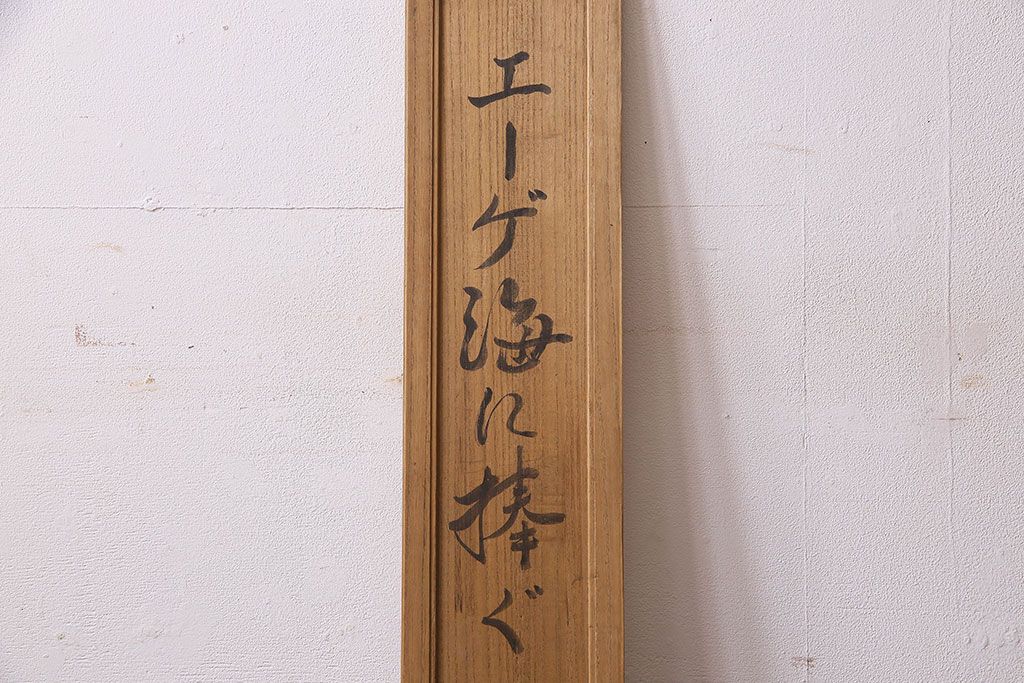 エーゲ海に捧ぐ